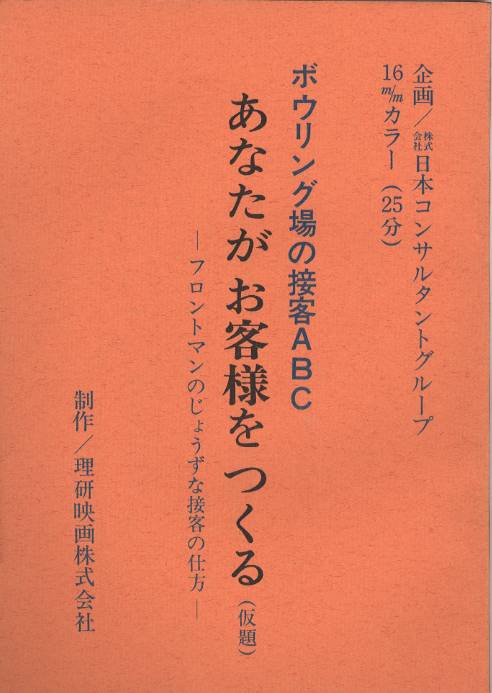 企画／株式会社日本コンサルタントグループ
16m/mカラー（25分）
ボウリング場の接客ABC
あなたがお客様をつくる（仮題）
―フロントマンのじょうずな接客の仕方―
制作／理研映画株式会社